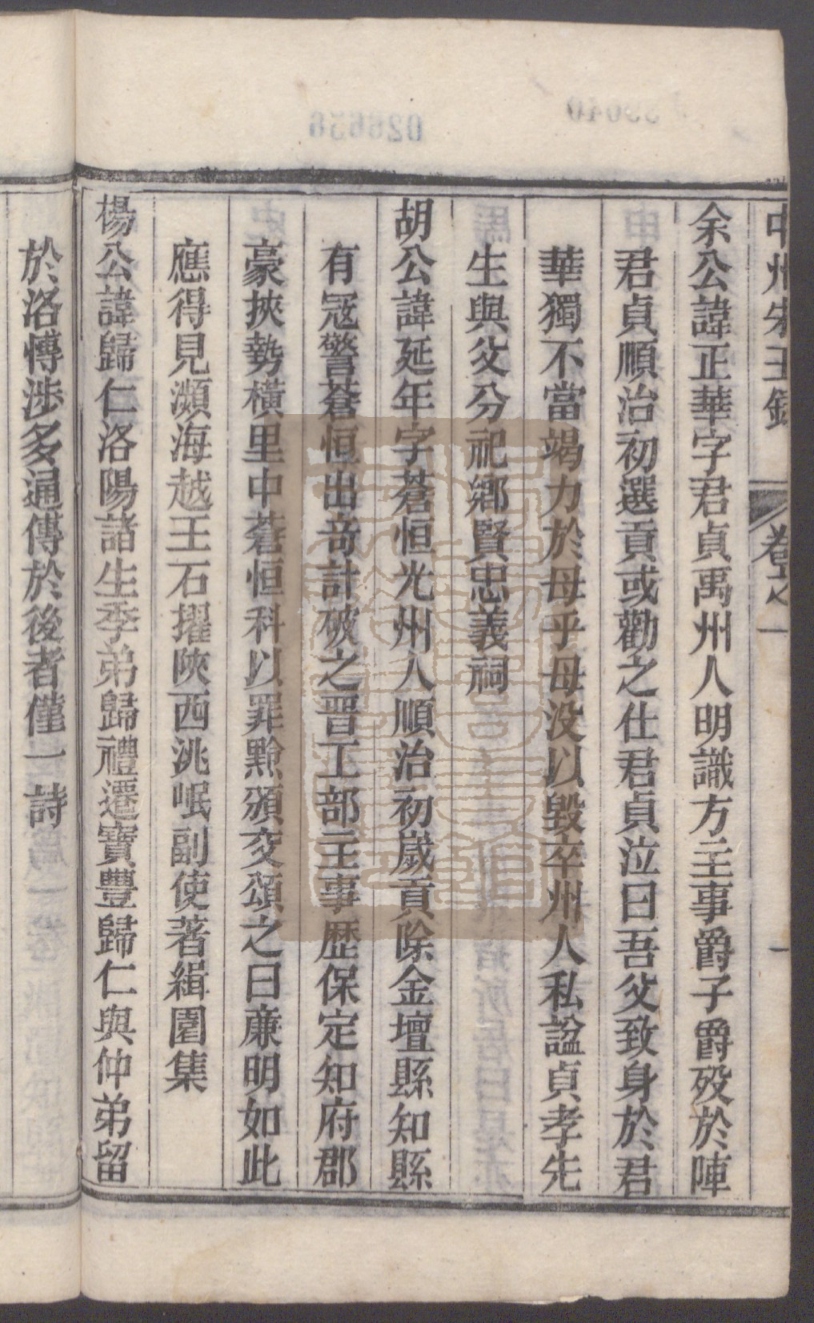 中州朱玉錄 卷之一 一
余公諱正華字君貞禹州人明職方主事爵子爵歿於陣
君貞順治初選貢或勸之仕君貞泣曰吾父致身於君
華獨不當竭力於母乎母沒以毀卒州人私諡貞孝先
生與父分祀鄉賢忠義祠
胡公諱延年字蒼恒光州人順治初歲貢除金壇縣知縣
有冦警蒼恒出奇計破之晉工部主事歷保定知府郡
豪挾勢橫里中蒼恒科以罪黥頟交頌之曰亷明如此
應得見瀕海越王石擢陝西洮岷副使著緝園集
楊公諱歸仁洛陽諸生季弟歸禮遷寶豐歸仁與仲弟留
於洛慱涉多通傳於後者僅一詩